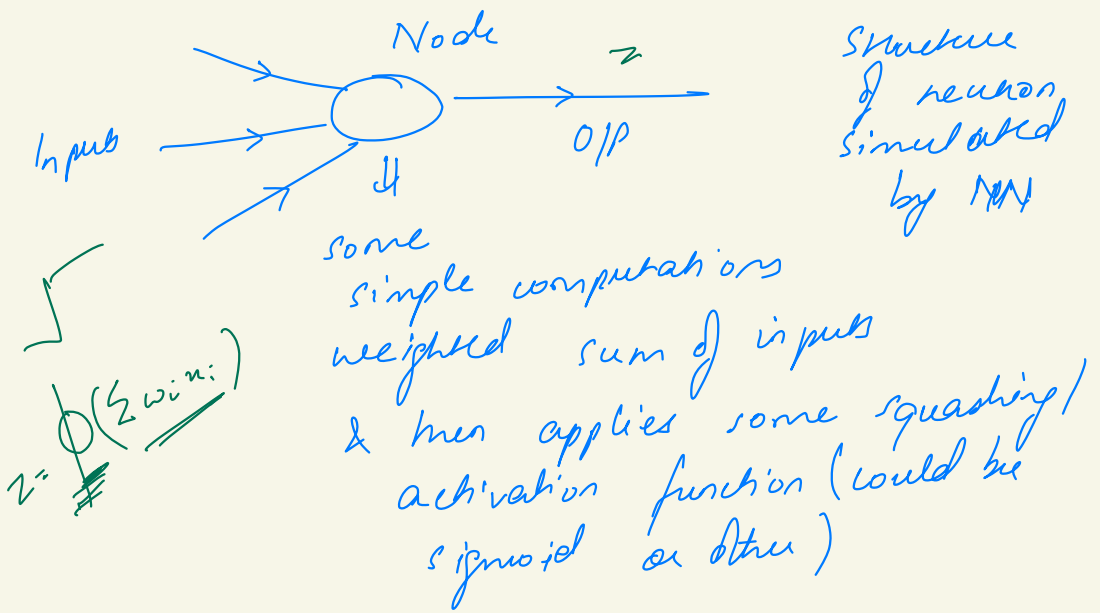 Node
z
Inputs
O/P
Structure
of neuron
simulated
by NN
some
simple computations
weighted sum of inputs
& then applies some squashing/
activation function (could be
sigmoid or other)
z = ϕ(Σ wixi)